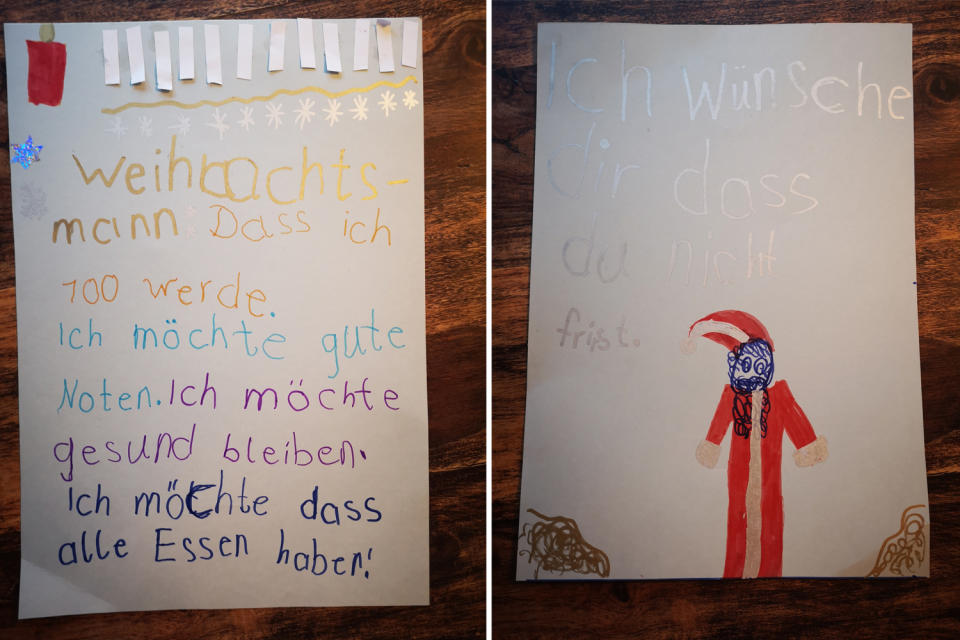 Weihnachts-
mann: Dass ich
100 werde.
Ich möchte gute
Noten. Ich möchte
gesund bleiben.
Ich möchte dass
alle Essen haben!
Ich wünsche
dir dass
du nicht
frist.